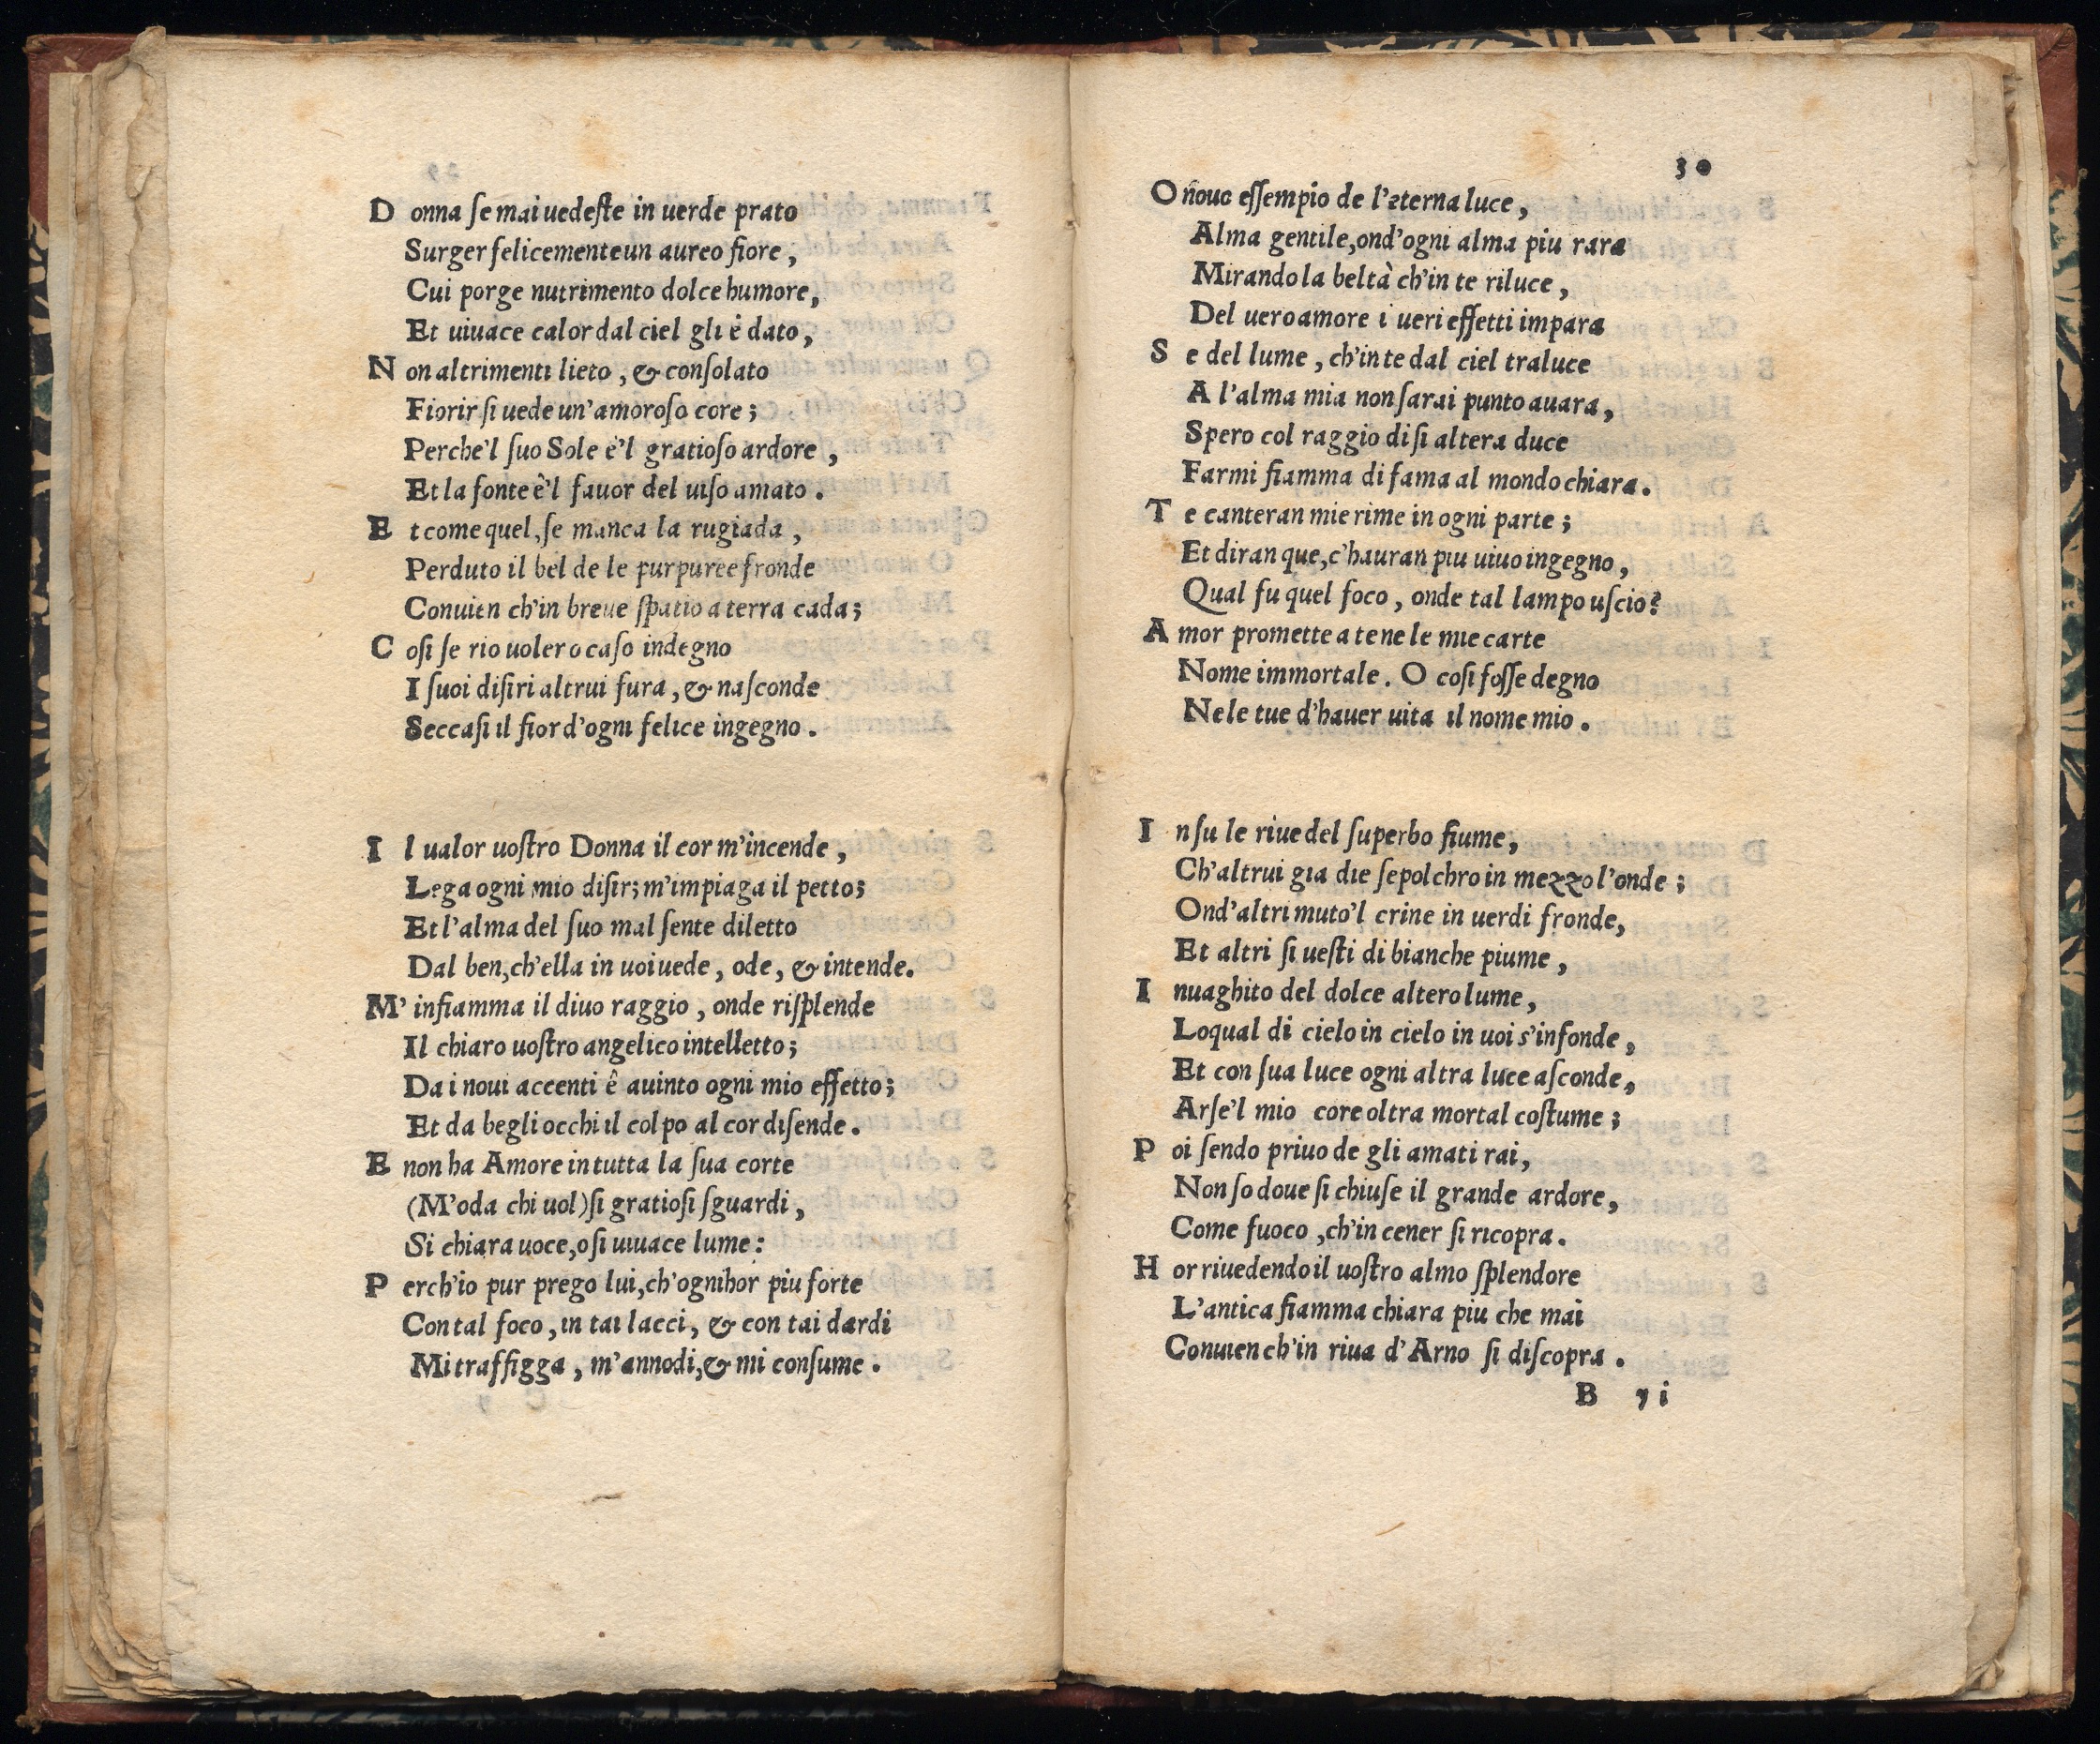 Donna ſe mai uedeſte in uerde prato
Surger felicemente un aureo fiore,
Cui porge nutrimento dolce humore,
Et uiuace calor dal ciel gli è dato,
Non altrimenti lieto, & conſolato
Fiorir ſi uede un'amoroſo core;
Perche'l ſuo Sole è'l gratioſo ardore,
Et la fonte è'l fauor del uiſo amato.
Et come quel, ſe manca la rugiada,
Perduto il bel de le purpuree fronde
Conuien ch'in breue ſpatio a terra cada;
Coſi ſe rio uoler o caſo indegno
I ſuoi diſiri altrui fura, & naſconde
Seccaſi il fior d'ogni felice ingegno.
Il ualor uoſtro Donna il cor m'incende,
Lega ogni mio diſir; m'impiaga il petto;
Et l'alma del ſuo mal ſente diletto
Dal ben, ch'ella in uoi uede, ode, & intende.
M'infiamma il diuo raggio, onde riſplende
Il chiaro uoſtro angelico intelletto;
Da i noui accenti ê auinto ogni mio effetto;
Et da begli occhi il colpo al cor diſende.
E non ha Amore in tutta la ſua corte
(M'oda chi uol) ſi gratioſi ſguardi,
Si chiara uoce, o ſi uiuace lume:
Perch'io pur prego lui, ch'ognihor piu forte
Con tal foco, in tai lacci, & con tai dardi
Mi traffigga, m'annodi, & mi conſume.
30
O nouo eſſempio de l'eterna luce,
Alma gentile, ond'ogni alma piu rara
Mirando la beltà ch'in te riluce,
Del uero amore i ueri effetti impara
Se del lume, ch'in te dal ciel traluce
A l'alma mia non ſarai punto auara,
Spero col raggio di ſi altera duce
Farmi fiamma di fama al mondo chiara.
Te canteran mie rime in ogni parte;
Et diran que, c'hauran piu uiuo ingegno,
Qual fu quel foco, onde tal lampo uſcio?
Amor promette a te ne le mie carte
Nome immortale. O coſi foſſe degno
Ne le tue d'hauer uita il nome mio.
In ſu le riue del ſuperbo fiume,
Ch'altrui gia die ſepolchro in mezzo l'onde;
Ond'altri muto'l crine in uerdi fronde,
Et altri ſi ueſti di bianche piume,
Inuaghito del dolce altero lume,
Loqual di cielo in cielo in uoi s'infonde,
Et con ſua luce ogni altra luce aſconde,
Arſe'l mio core oltra mortal coſtume;
Poi ſendo priuo de gli amati rai,
Non ſo doue ſi chiuſe il grande ardore,
Come fuoco, ch'in cener ſi ricopra.
Hor riuedendo il uoſtro almo ſplendore
L'antica fiamma chiara piu che mai
Conuien ch'in riua d'Arno ſi diſcopra.
B yi